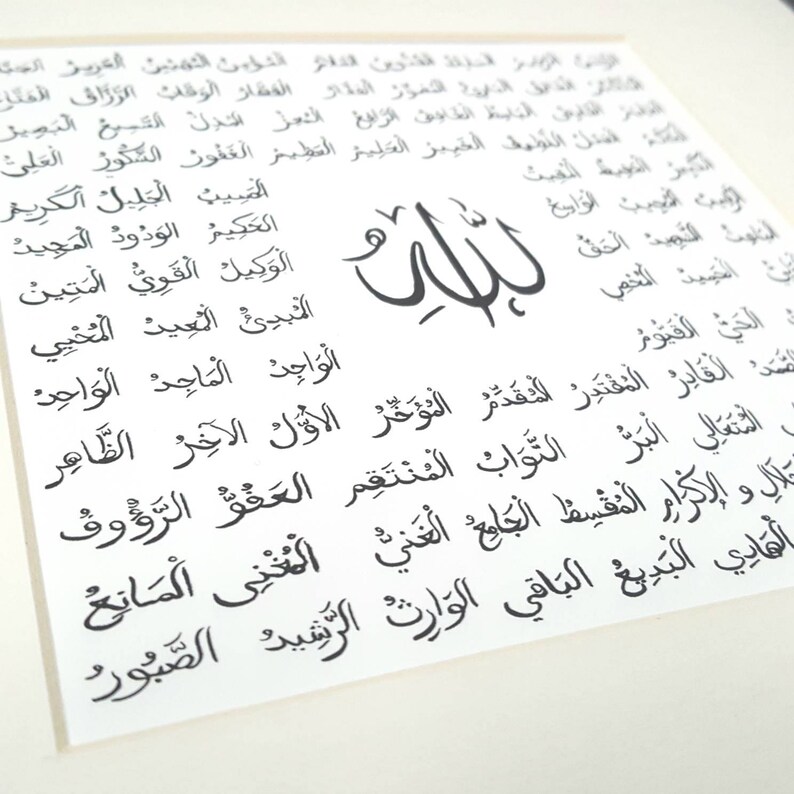 المؤمن المهيمن العزيز
المصور الغفار القهار الوهاب الرزاق
القابض الباسط الخافض الرافع المعز المذل السميع البصير
العدل اللطيف الخبير الحليم العظيم الغفور الشكور العلي
الكبير الحفيظ المقيت الحسيب الجليل الكريم
الرقيب المجيب الواسع الحكيم الودود المجيد
الله
الشهيد الحق الوكيل القوي المتين
الحميد المحصي المبدئ المعيد المحيي
الحي القيوم الْوَاجِدُ الْمَاجِدُ الْوَاحِدُ
الصمد الْقَادِرُ الْمُقْتَدِرُ الْمُقَدِّمُ الْمُؤَخِّرُ الْأَوَّلُ الْآخِرُ الظَّاهِر
الْمُتَعَالِي الْبَرُّ التَّوَابُ الْمُنْتَقِم الْعَفُوُّ الرَّؤُوفُ
و الْإِكْرَامِ الْمُقْسِطُ الْجَامِعُ الْغَنِيُّ الْمُغْنِي الْمَانِعُ
الْهَادِي الْبَدِيعُ الْبَاقِي الْوَارِثُ الرَّشِيدُ الصَّبُورُ